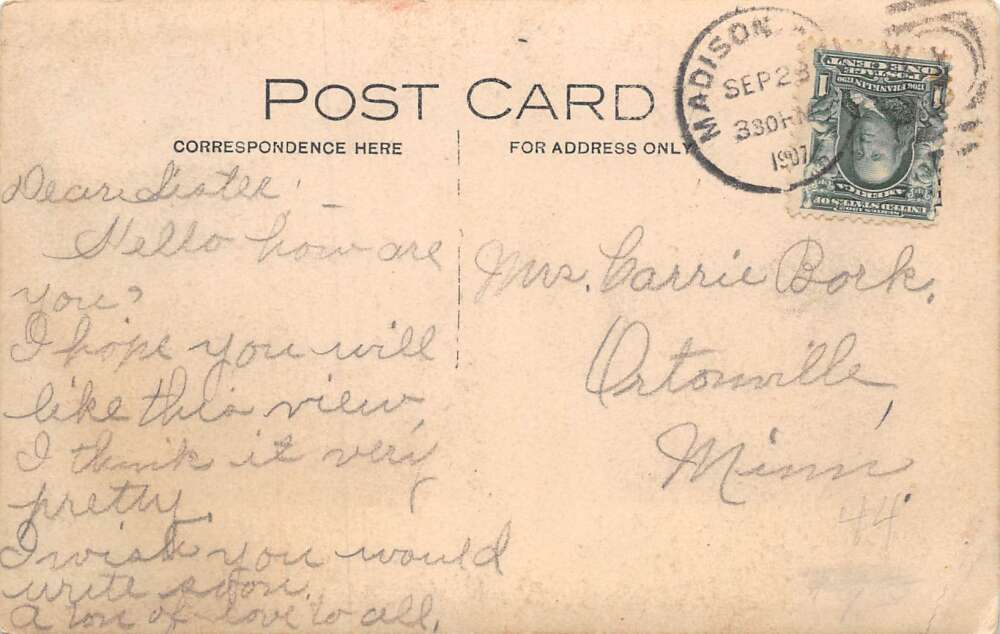 POST CARD
CORRESPONDENCE HERE
FOR ADDRESS ONLY
MADISON
SEP 28
330 PM
1907
ONE CENT
POSTAGE
1706 FRANKLIN 1790
1 1
UNITED STATES OF
AMERICA
SERIES 1902
Dear Sister,
Hello how are
you?
I hope you will
like this view,
I think it very
pretty.
I wish you would
write soon.
a ton of love to all.
Mrs. Carrie Bork.
Ortonville,
Minn
44